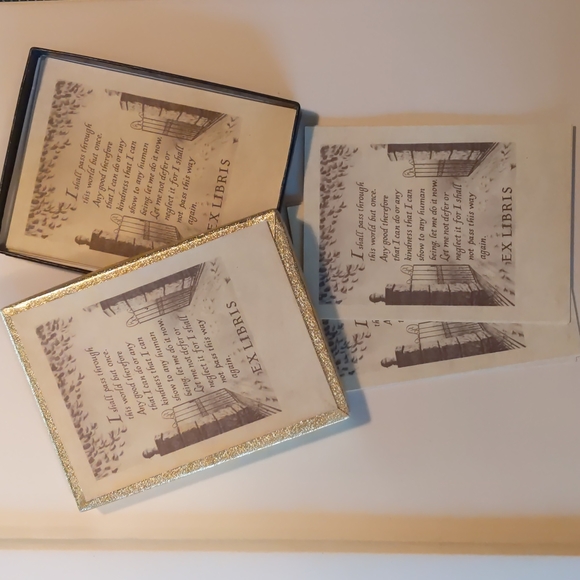 I shall pass through
this world but once.
Any good therefore
that I can do or any
kindness that I can
show to any human
being, let me do it now.
Let me not defer or
neglect it for I shall
not pass this way
again.
EX LIBRIS
I shall pass through
this world but once.
Any good therefore
that I can do or any
kindness that I can
show to any human
being, let me do it now.
Let me not defer or
neglect it for I shall
not pass this way
again.
EX LIBRIS
I shall pass through
this world but once.
Any good therefore
that I can do or any
kindness that I can
show to any human
being, let me do it now.
Let me not defer or
neglect it for I shall
not pass this way
again.
EX LIBRIS